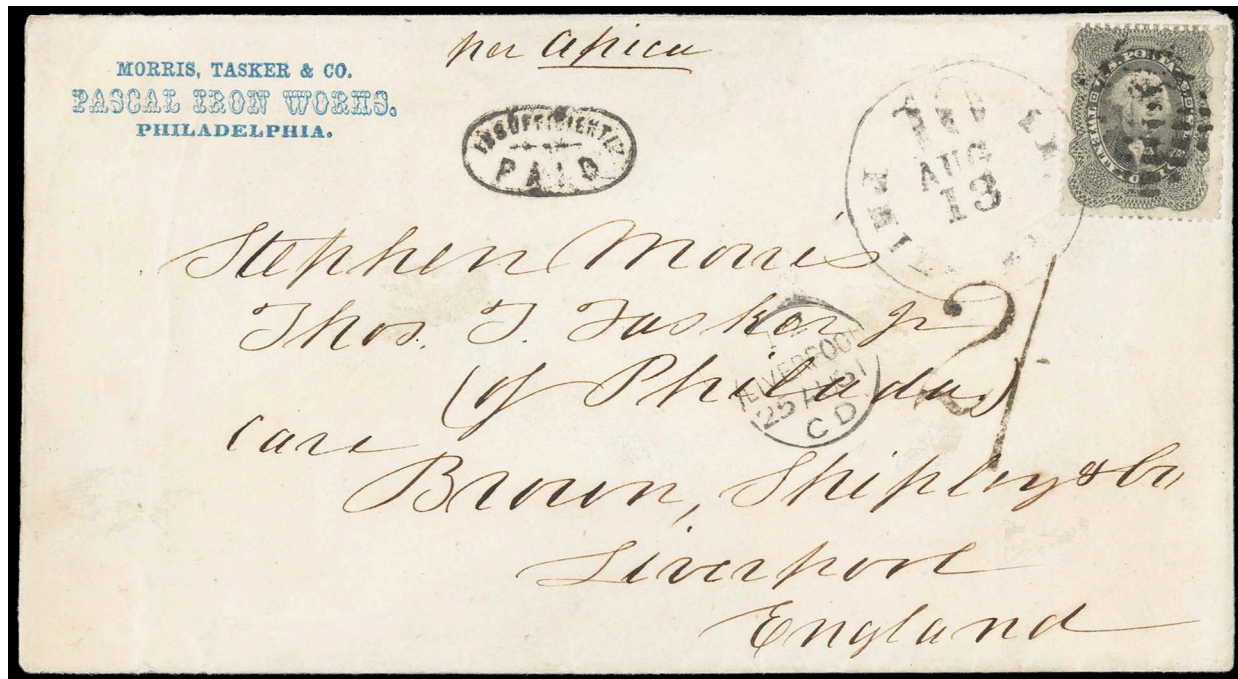 per Africa
MORRIS, TASKER & CO.
PASCAL IRON WORKS.
PHILADELPHIA.
INSUFFICIENTLY
PAID
AUG
13
Stephen Morris
Thos. T. Tasker Jr
(of Philada)
care
Brown, Shipley & Co
Liverpool
England
LIVERPOOL
25 AU 61
CD
21